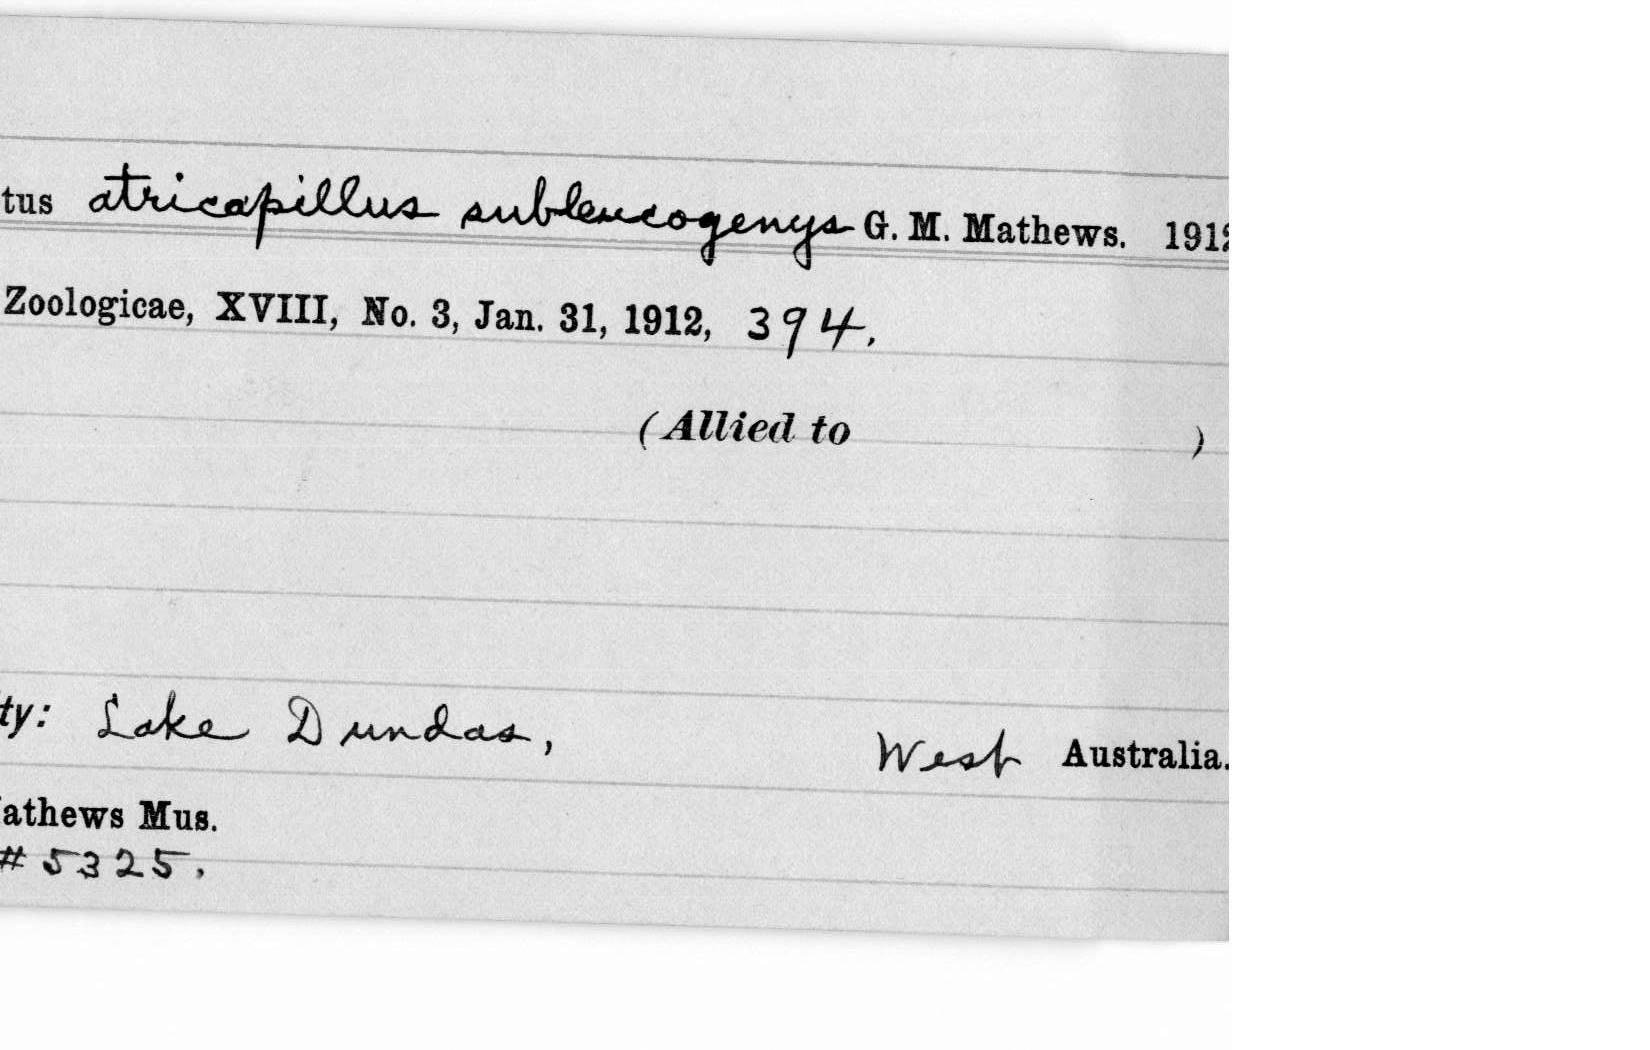 tus atricapillus subleucogenys G. M. Mathews. 1912
Zoologicae, XVIII, No. 3, Jan. 31, 1912, 394.
(Allied to )
ty: Lake Dundas, West Australia.
athews Mus.
# 5325.